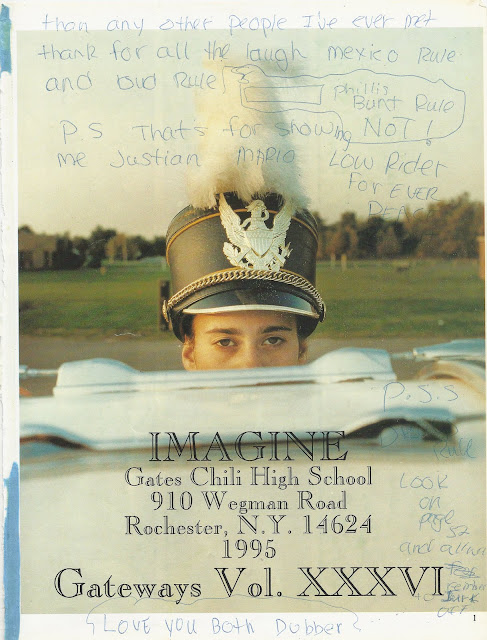 than any other people I've ever met
thank for all the laugh mexico Rule
and bud Rule
Phillis
Bunt Rule
NOT!
P.S That's for showing
me Justian MARIO
LOW Rider
FOR EVER
PEACE
P.S.S
Rule
LOOK
on
page
52
and
IMAGINE
Gates Chili High School
910 Wegman Road
Rochester, N.Y. 14624
1995
Gateways Vol. XXXVI
OFF
1
LOVE YOU BOTH DUBBER